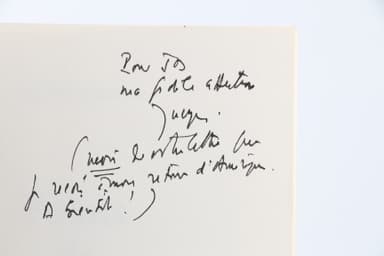 Pour
ma fidèle affection
Jacques.
(merci de votre lettre que
je reçois à mon retour d'Amérique.
A bientôt !)